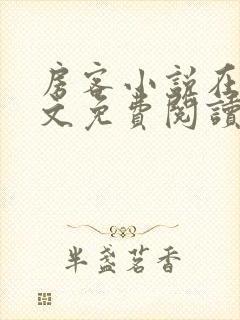 房客小說在
文免費閱讀
半盞茗香